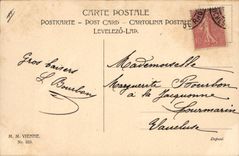 CARTE POSTALE
POSTKARTE - POST CARD - CARTOLINA POSTALE
LEVELEZŐ-LAP.
Gros baisers
L. Bourbon
Mademoiselle
Marguerite Bourbon
à la Jacquonne
Lourmarin
Vaucluse
M. M. VIENNE.
Déposé